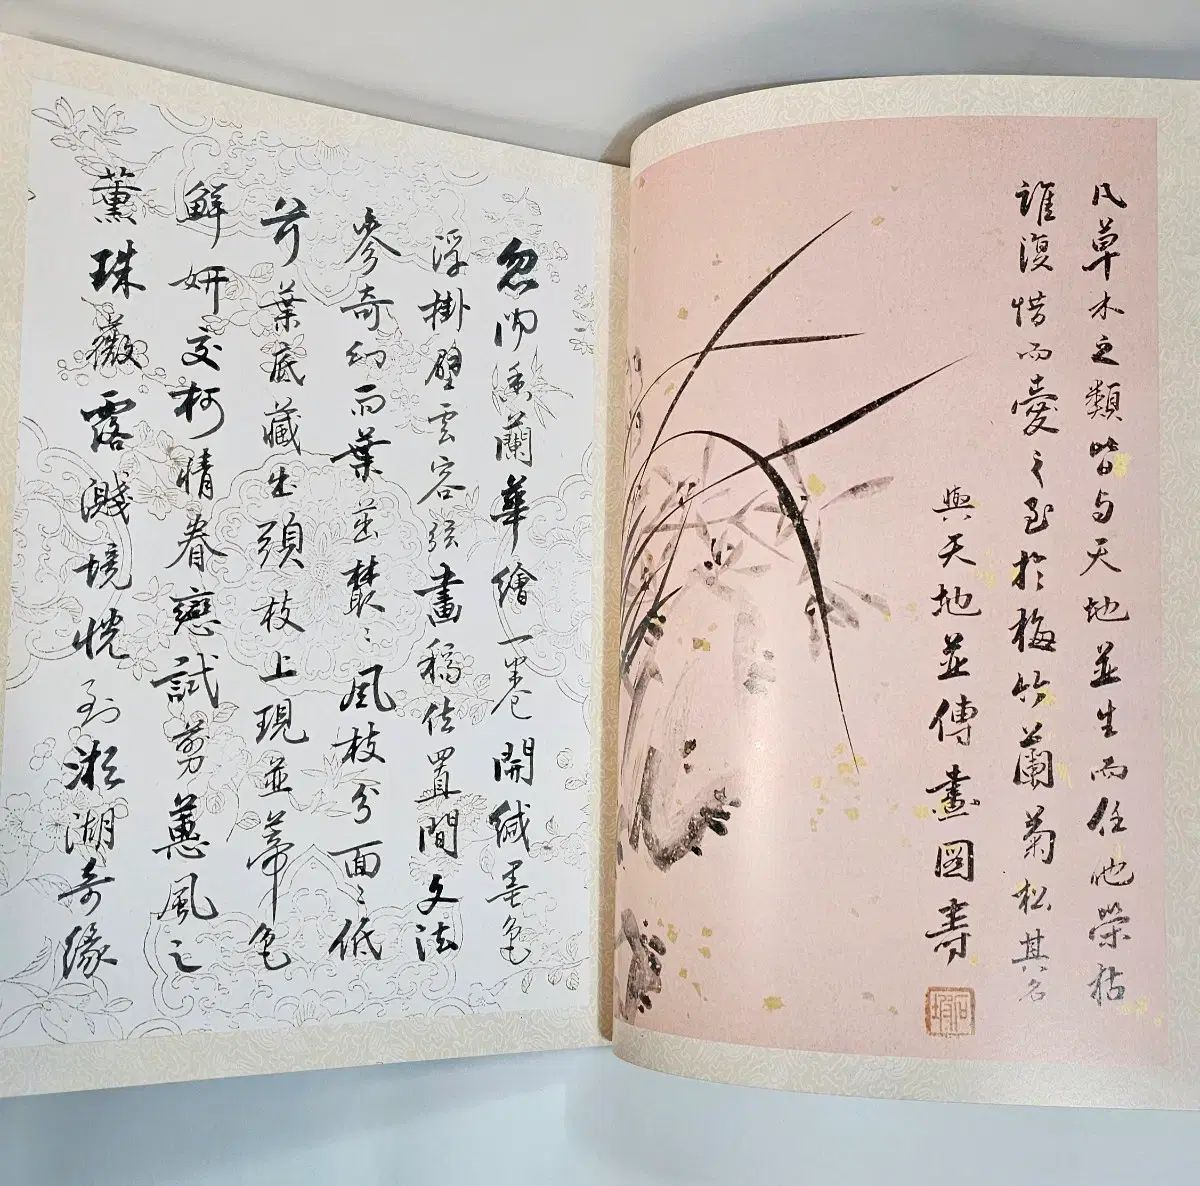 凡草木之類皆与天地並生而任他榮枯
誰復惜而愛之至於梅竹蘭菊松其名
與天地並傳畫圖壽
石坡
忽聞香蘭華繪一卷開緘墨色
浮掛壁雲容畫稿位置間文法
參奇幻而葉叢〻風枝分面〻低
葉底藏出頭枝上現並蒂色
鮮妍交柯情眷戀試剪蕙風之
薰珠薇露濺境恍到湘湖奇緣